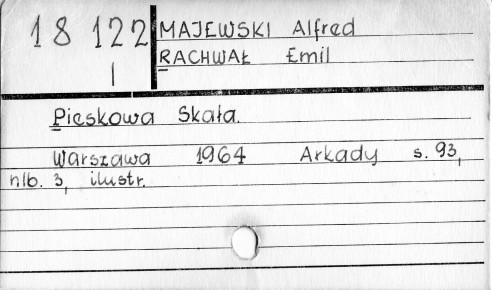 18 122 MAJEWSKI Alfred
I RACHWAŁ Emil
Pieskowa Skała.
Warszawa 1964 Arkady s. 93,
nlb. 3, ilustr.